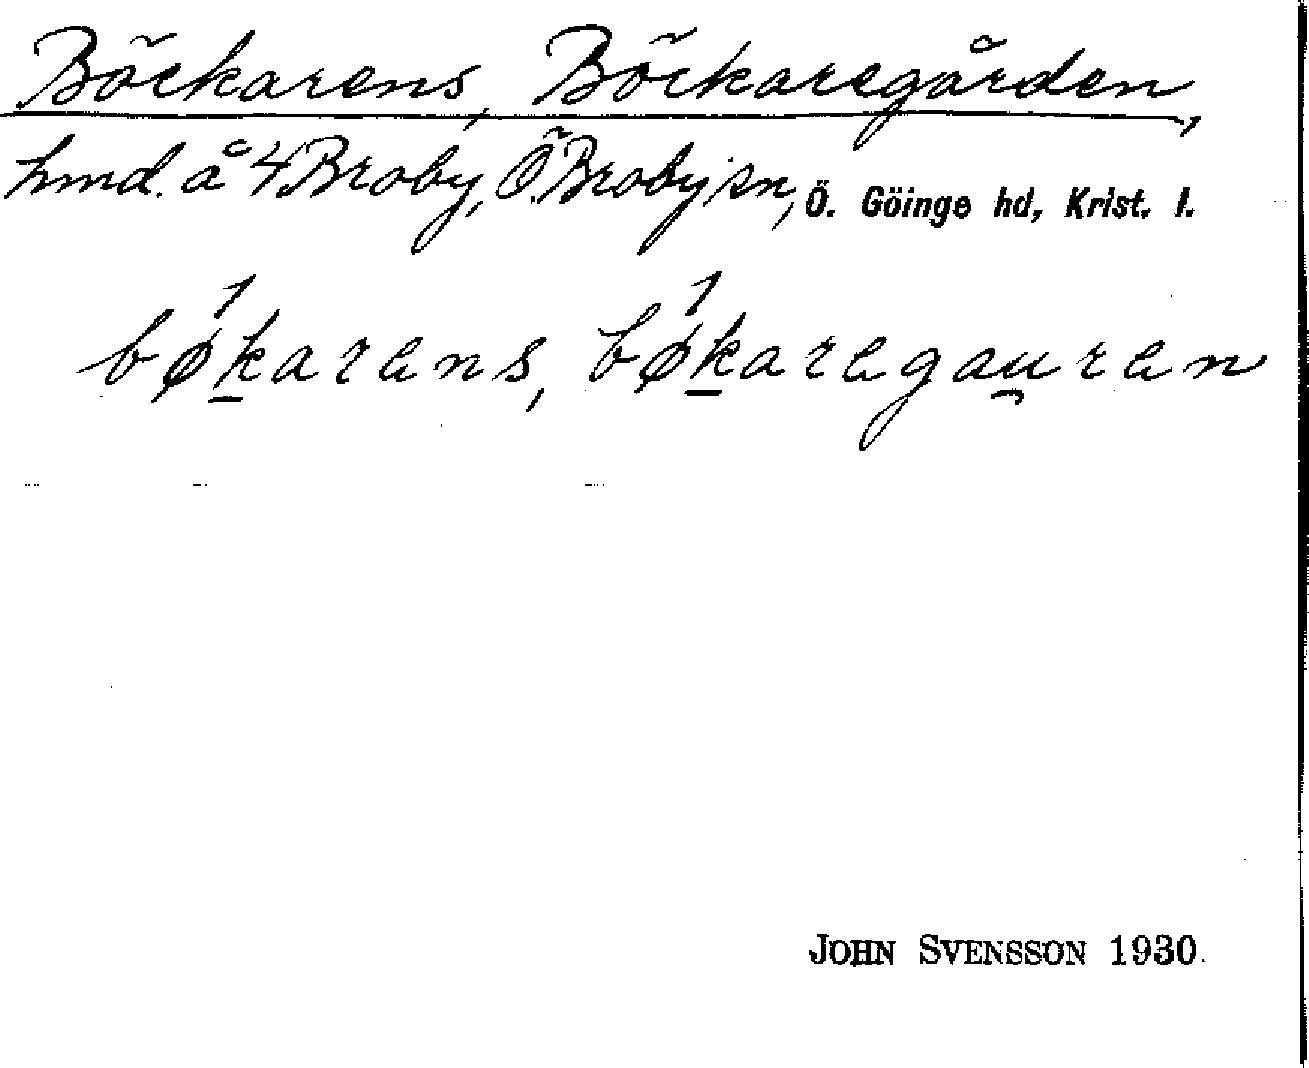 Böckarens, Böckaregården,
hmd. å 4 Broby, Ö. Broby sn, Ö. Göinge hd, Krist. l.
bǿk̲arens, bǿk̲aregau̯ren
JOHN SVENSSON 1930.